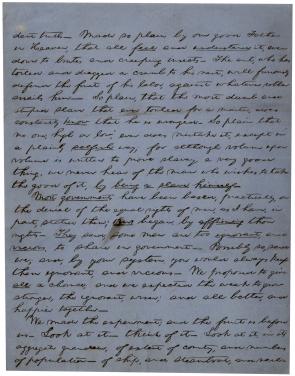 dent truth — Made so plain by our good Father
in Heaven, that all feel and understand it, even
down to brutes and creeping insects. The ant, who has
toiled and dragged a crumb to his nest, will furiously
defend the fruit of his labor, against whatever robber
assails him. So plain, that the most dumb and
stupid slave that ever toiled for a master, does
constantly know that he is wronged. So plain that
no one, high or low, ever does mistake it, except in
a plainly selfish way; for although volume upon
volume is written to prove slavery a very good
thing, we never hear of the man who wishes to take
the good of it, by being a slave himself.
Most governments have been based, practically, on
the denial of the equal rights of men, as I have, in
part, stated them; ours began, by affirming those
rights. They said, some men are too ignorant, and
vicious, to share in government. Possibly so, said
we; and, by your system, you would always keep
them ignorant, and vicious. We proposed to give
all a chance; and we expected the weak to grow
stronger, the ignorant, wiser; and all better, and
happier together.
We made the experiment; and the fruit is before
us. Look at it — think of it. Look at it, in its
aggregate grandeur, of extent of country, and numbers
of population — of ship, and steamboat, and rail-